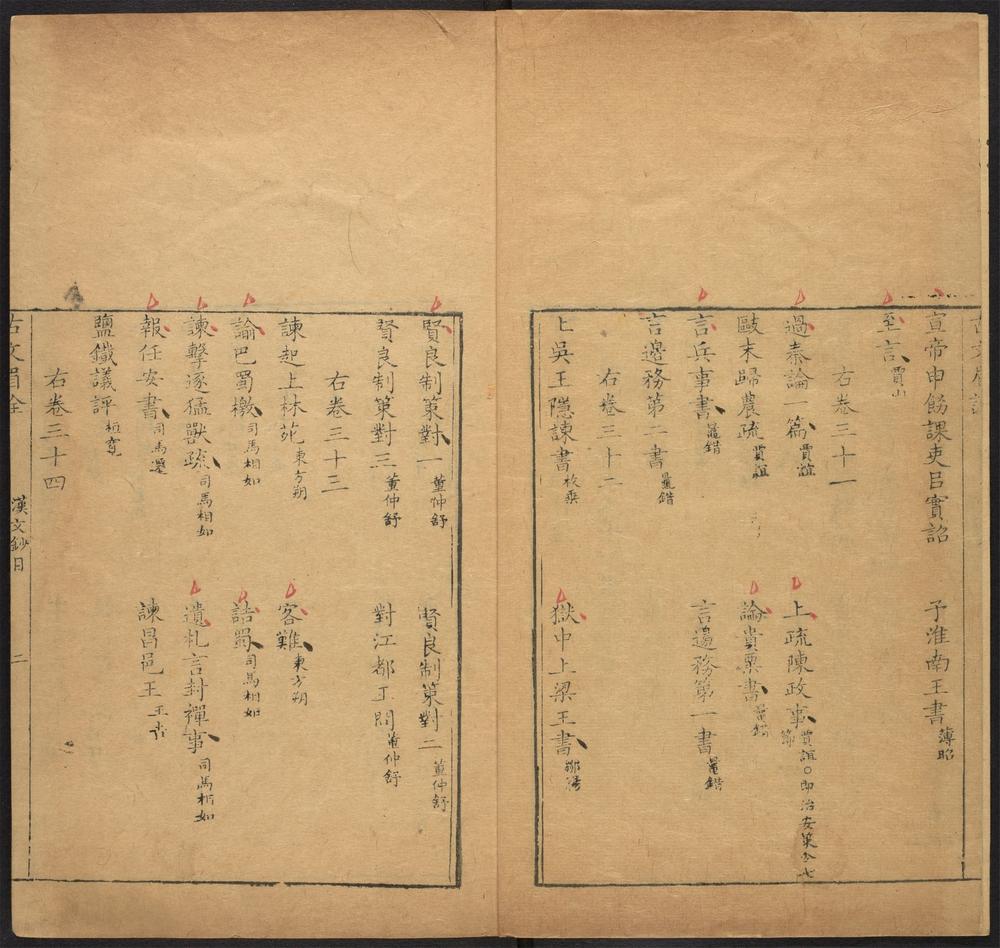 宣帝申飭課吏㠯實詔 子淮南王書 薄昭
至言 賈山
右卷三十一
過秦論一篇 賈誼 上疏陳政事 賈誼○即治安策
歐末歸農疏 賈誼 論貴粟書 鼂錯
言兵事書 鼂錯 言邊務第一書 鼂錯
言邊務第二書 鼂錯
右卷三十二
上吳王隱諫書 枚乘 獄中上梁王書 鄒陽
賢良制策對一 董仲舒 賢良制策對二 董仲舒
賢良制策對三 董仲舒 對江都王問 董仲舒
右卷三十三
諫起上林苑 東方朔 客難 東方朔
諭巴蜀檄 司馬相如 詰蜀 司馬相如
諫擊逐猛獸疏 司馬相如 遺札言封禪事 司馬相如
報任安書 司馬遷 諫昌邑王 王吉
鹽鐵議評 桓寬
右卷三十四
古文眉詮 漢文鈔目 二